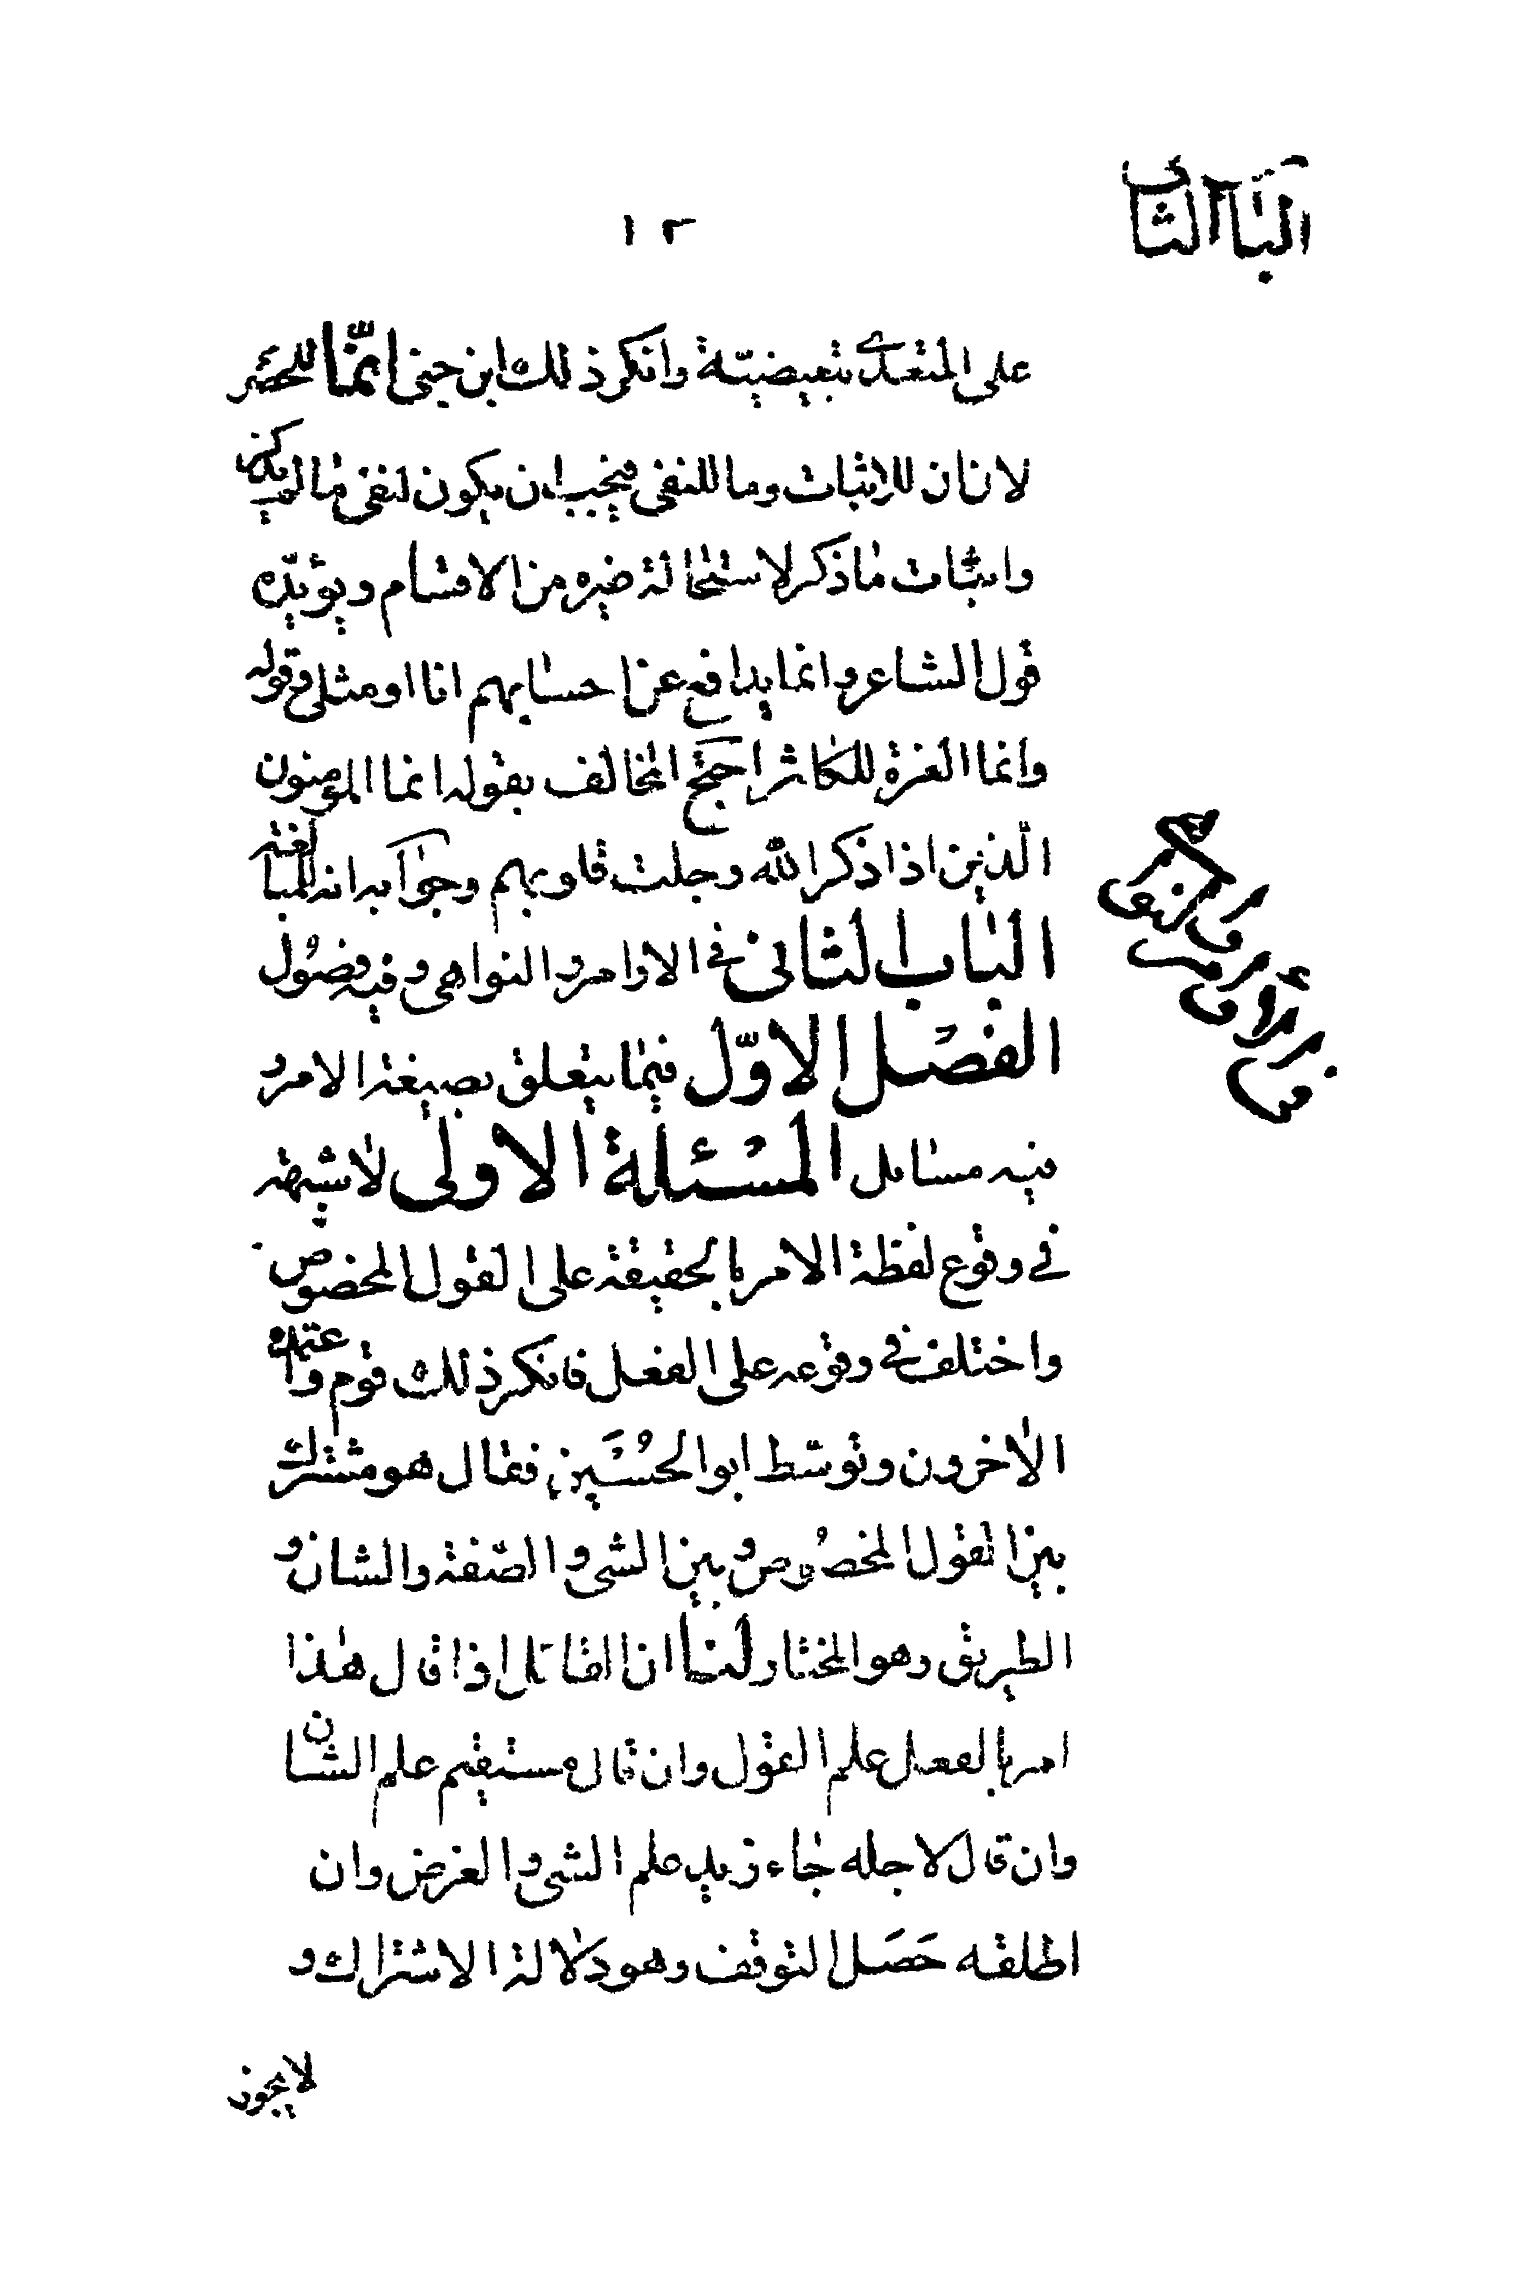 الباب الثانی
١٢
على المتعدي تبعيضيّة وانكر ذلك ابن جنى انّما للحصر
لان ان للاثبات وما للنفى فيجب ان يكون لنفى ما لم يذكر
واثبات ما ذكر لاستحالة غيره من الاقسام ويؤيّده
قول الشاعر وانما يدافع عن احسابهم انا او مثلى وقوله
وانما العزة للكاثر احتج المخالف بقوله انما المؤمنون
الّذين اذا ذكر الله وجلت قلوبهم وجوابه انه للمبالغة
الباب الثانى فى الاوامر والنواهى وفيه فصول
الفصل الاوّل فيما يتعلق بصيغة الامر و
فيه مسايل المسئلة الاولى لا شبهة
فى وقوع لفظة الامر بالحقيقة على القول المخصوص
واختلف فى وقوعه على الفعل فانكر ذلك قوم واعتمده
الاخرون وتوسّط ابو الحسين فقال هو مشترك
بين القول المخصوص وبين الشى والصّفة والشان و
الطريق وهو المختار لنا ان القائل اذا قال هذا
امر بالفعل علم القول وان قال مستقيم علم الشان
وان قال لاجله جاء زيد علم الشى والغرض وان
اطلقه حصل التوقف وهو دلالة الاشتراك و
لا يجوز